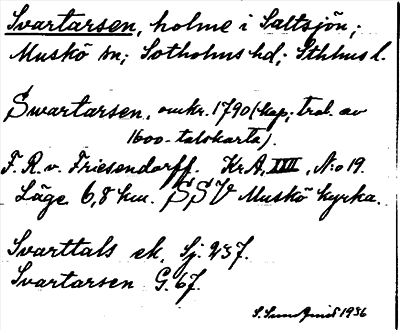 Svartarsen, holme i Saltsjön;
Muskö sn; Sotholms hd; Sthlms l.
Swartarsen, omkr. 1790 (kop; trol. av
1600-talskarta).
F. R. v. Friesendorff. Kr A, IIII, N:o 19.
Läge 6,8 km. SSV Muskö kyrka.
Svarttals ek. Sj. 237.
Svartarsen G. 67.
1936